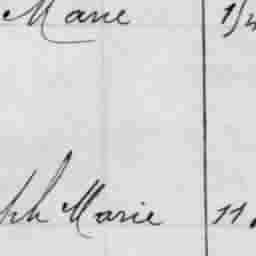 Marie 1/4
ph Marie 11